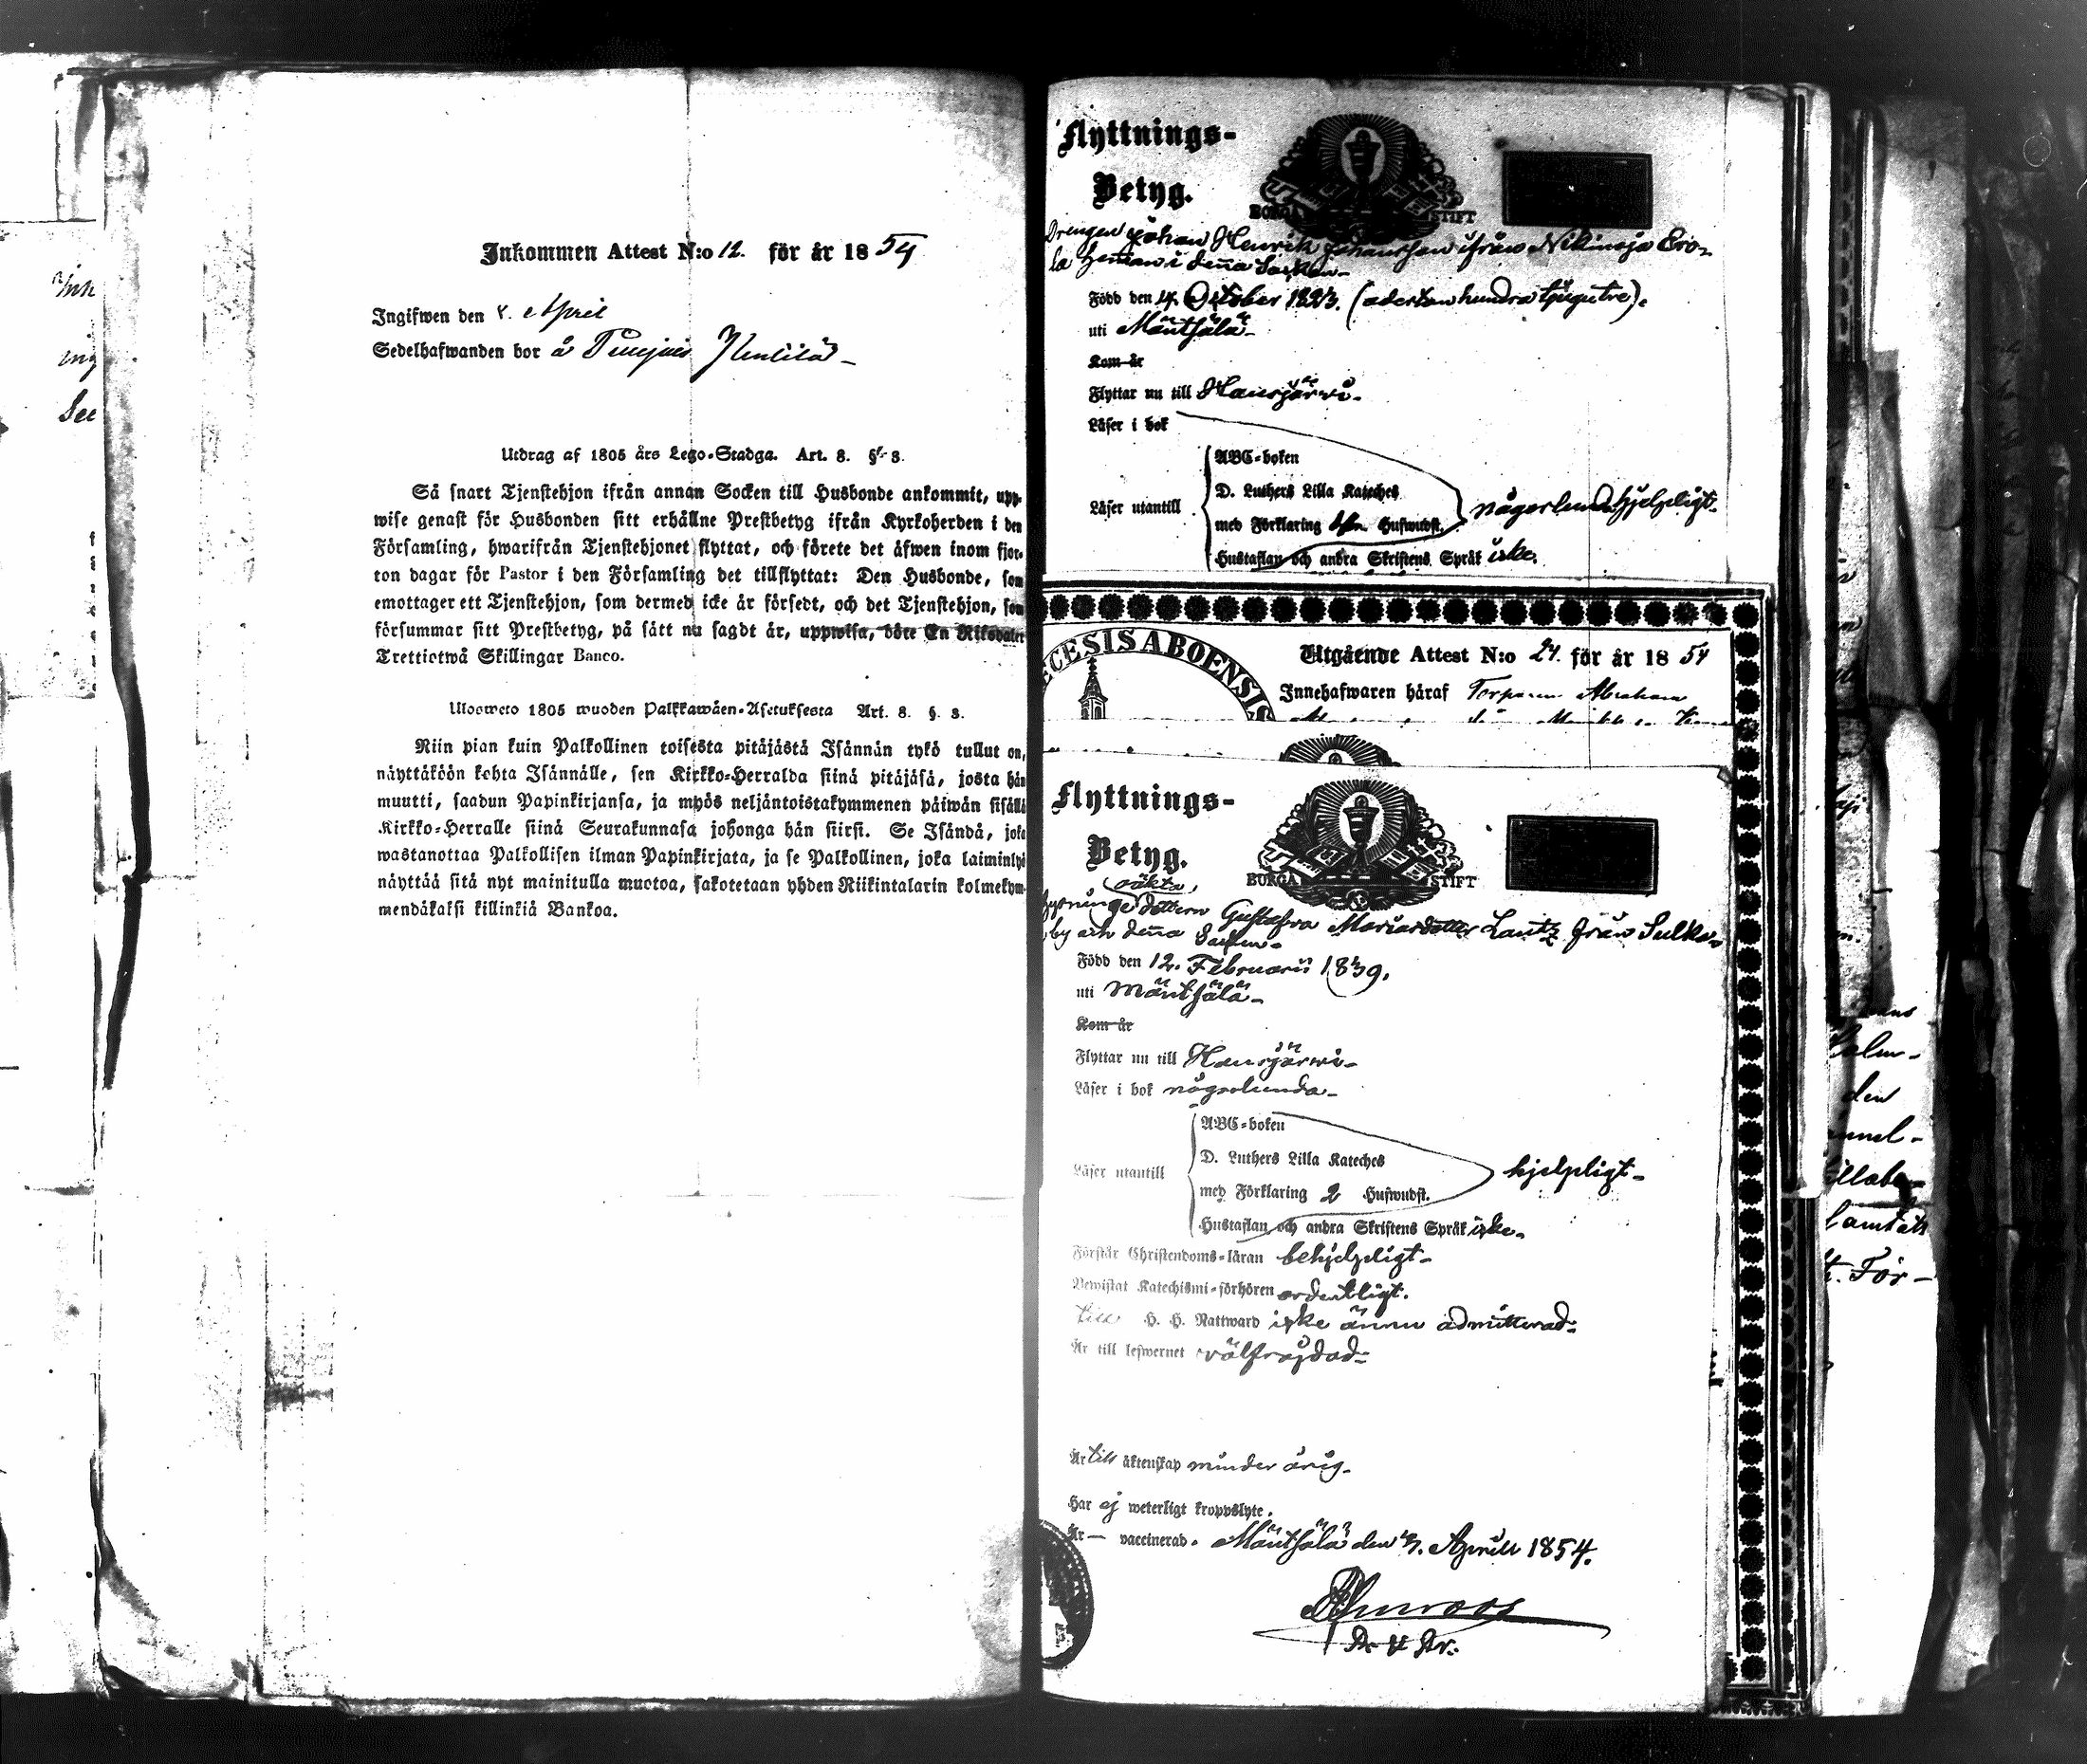 Inkommen Attest N:o 12. för år 1854
Ingifwen den 8. April
Sedelhafwanden bor å
Utdrag af 1805 års Lego-Stadga. Art. 8. §. 8.
Så snart Tjenstehjon ifrån annan Socken till Husbonde ankommit, upp-
wise genast för Husbonden sitt erhållne Prestbetyg ifrån Kyrkoherden i den
Församling, hwarifrån Tjenstehjonet flyttat, och förete det äfwen inom fjor-
ton dagar för Pastor i den Församling det tillflyttat: Den Husbonde, som
emottager ett Tjenstehjon, som dermed icke är försedt, och det Tjenstehjon, som
försummar sitt Prestbetyg, på sätt nu sagdt är, uppwisa, böte En Riksdaler
Trettiotwå Skillingar Banco.
Ulosweto 1805 wuoden Palkkawäen-Asetuksesta Art. 8. §. 8.
Niin pian kuin Palkollinen toisesta pitäjästä Isännän tykö tullut on,
näyttäköön kohta Isännälle, sen Kirkko-Herralda siinä pitäjäsä, josta hän
muutti, saadun Papinkirjansa, ja myös neljäntoistakymmenen päiwän sisällä
Kirkko-Herralle siinä Seurakunnasa johonga hän siirsi. Se Isändä, joka
wastanottaa Palkollisen ilman Papinkirjata, ja se Palkollinen, joka laiminlyö
näyttää sitä nyt mainitulla muotoa, sakotetaan yhden Riikintalarin kolmekym-
mendäkaksi killinkiä Bankoa.
Flyttnings-
Betyg.
BORGÅ STIFT
Drengen Johan Henrik Johansson ifrån Nikinoja Ero-
la heman i denna Socken-
Född den 4. October 1823. (adertonhundratjugutre).
uti Mäntsälä-
Kom år
Flyttar nu till Hausjärwi-
Läser i bok
Läser utantill
ABC-boken
D. Luthers Lilla Kateches
med Förklaring Huswudst.
någorlunda hjelpligt-
Hustaflan och andra Skriftens Språk icke.
ECESIS ABOENSIS
Utgående Attest N:o 24. för år 1854
Innehafwaren häraf Torparen Abraham
Flyttnings-
Betyg.
BORGÅ STIFT
oäkta
dottern Gustafva Mariasdotter Lantz från Sulka-
by och denna Socken-
Född den 12. Februarii 1839.
uti Mäntsälä-
Kom år
Flyttar nu till Hausjärwi-
Läser i bok någorlunda-
Läser utantill
ABC-boken
D. Luthers Lilla Kateches
med Förklaring 2 Huswudst.
hjelpligt-
Hustaflan och andra Skriftens Språk icke-
Förstår Christendoms-läran behjelpligt-
Bewistat Katechismi-förhören ordentligt.
till H. H. Nattward icke ännu admitterad-
Är till lefwernet välfrejdad-
Är till äktenskap minderårig-
Har ej weterligt kroppslyte.
Är — vaccinerad. Mäntsälä den 3. April 1854.